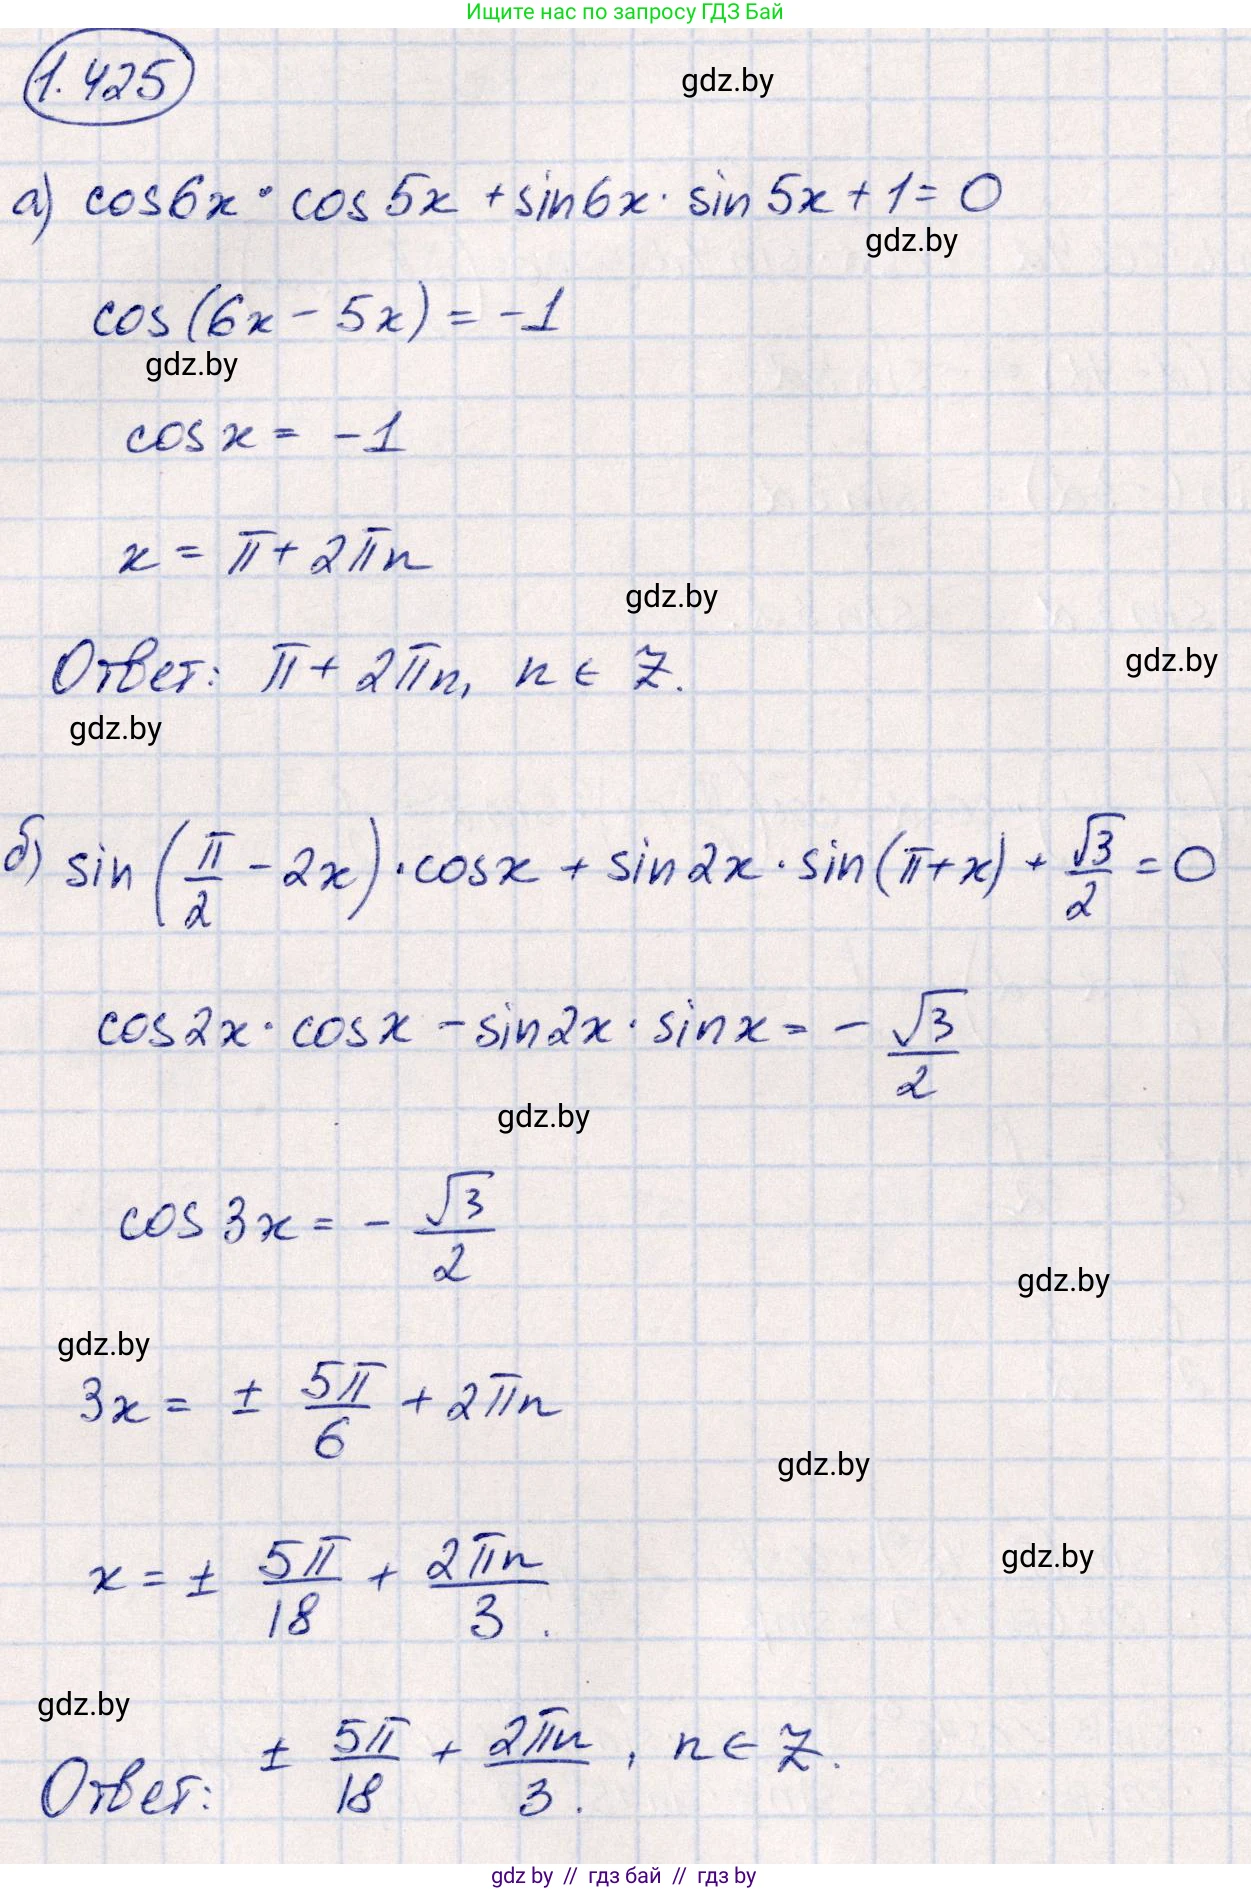 Ищите нас по запросу ГДЗ Бай
1.425
gdz.by
а) cos6x · cos5x + sin6x · sin5x + 1 = 0
gdz.by
cos(6x - 5x) = -1
gdz.by
cosx = -1
x = π + 2πn
gdz.by
Ответ: π + 2πn, n ∈ Z.
gdz.by
gdz.by
б) sin(π/2 - 2x) · cosx + sin2x · sin(π+x) + √3/2 = 0
cos2x · cosx - sin2x · sinx = - √3/2
gdz.by
cos3x = - √3/2
gdz.by
gdz.by
3x = ± 5π/6 + 2πn
gdz.by
x = ± 5π/18 + 2πn/3.
gdz.by
gdz.by
Ответ: ± 5π/18 + 2πn/3., n ∈ Z.
gdz by // гдз бай // гдз by